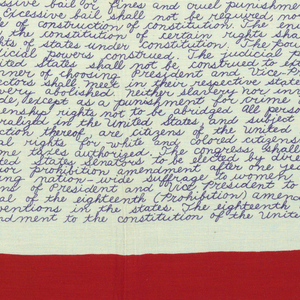 cessive bail or fines and cruel punishmen
Excessive bail shall not be required, no
of construction of constitution. The en
the constitution of certain rights sha
ghts of states under constitution. The pow
cial powers construed. The judicial
ited states shall not be construed to ext
nner of choosing President and Vice-Pre
ctors shall meet in their respective state
very abolished. Neither slavery nor inv
de, except as a punishment for crime
enship rights not to be abridged all perso
ralized in the United States and subject
ction thereof, are citizens of the United
al rights for white and colored citizens
me taxes authorized. The congress shall
ted States senators to be elected by dir
uor prohibition amendment after one yea
ing nation-wide suffrage to women
m of President and Vice President to
al of the eighteenth (Prohibition) amend
ventions in the states. The eighteenth
ndment to the constitution of the Unite